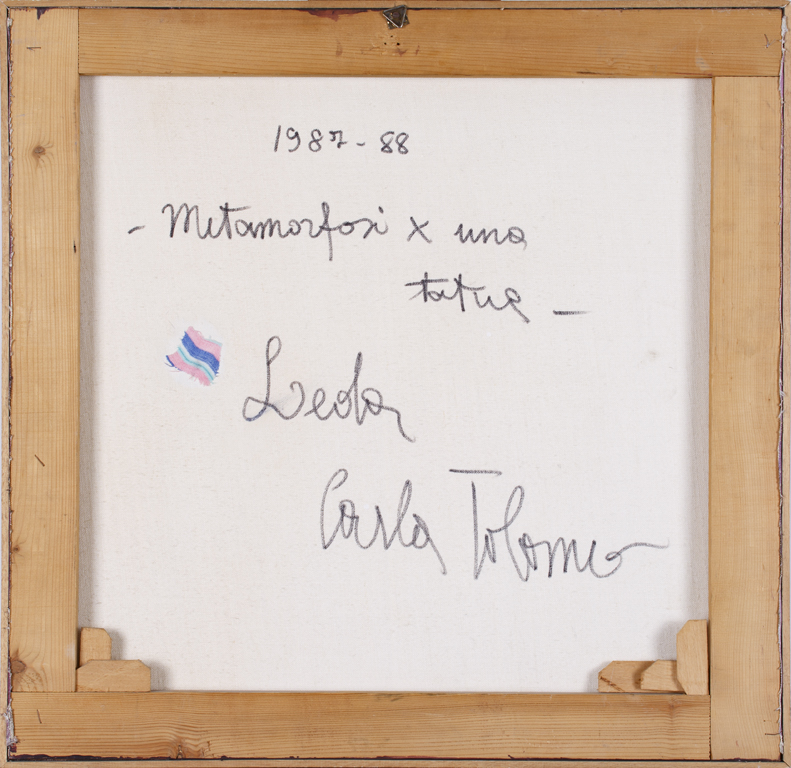 1987-88
- Metamorfosi x una
tatua -
Leda
Carla Tolomeo